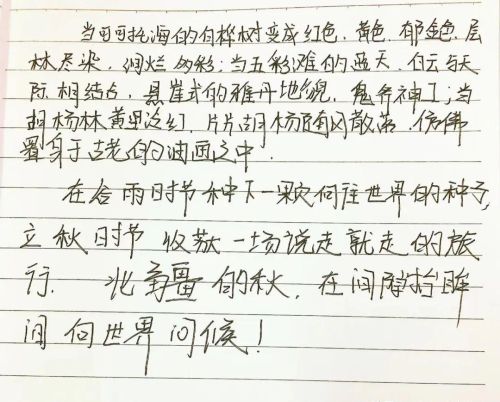 当可可托海的白桦树变成红色、黄色、郁金色,层
林尽染,绚烂多彩;当五彩滩的蓝天、白云与天
际相结合,悬崖式的雅丹地貌,鬼斧神工;当
胡杨林黄里泛红,片片胡杨随风散落,仿佛
置身于古老的油画之中.
在谷雨时节种下一颗向往世界的种子,
立秋时节收获一场说走就走的旅
行. 北疆的秋,在间隙抬眸
间向世界问候!